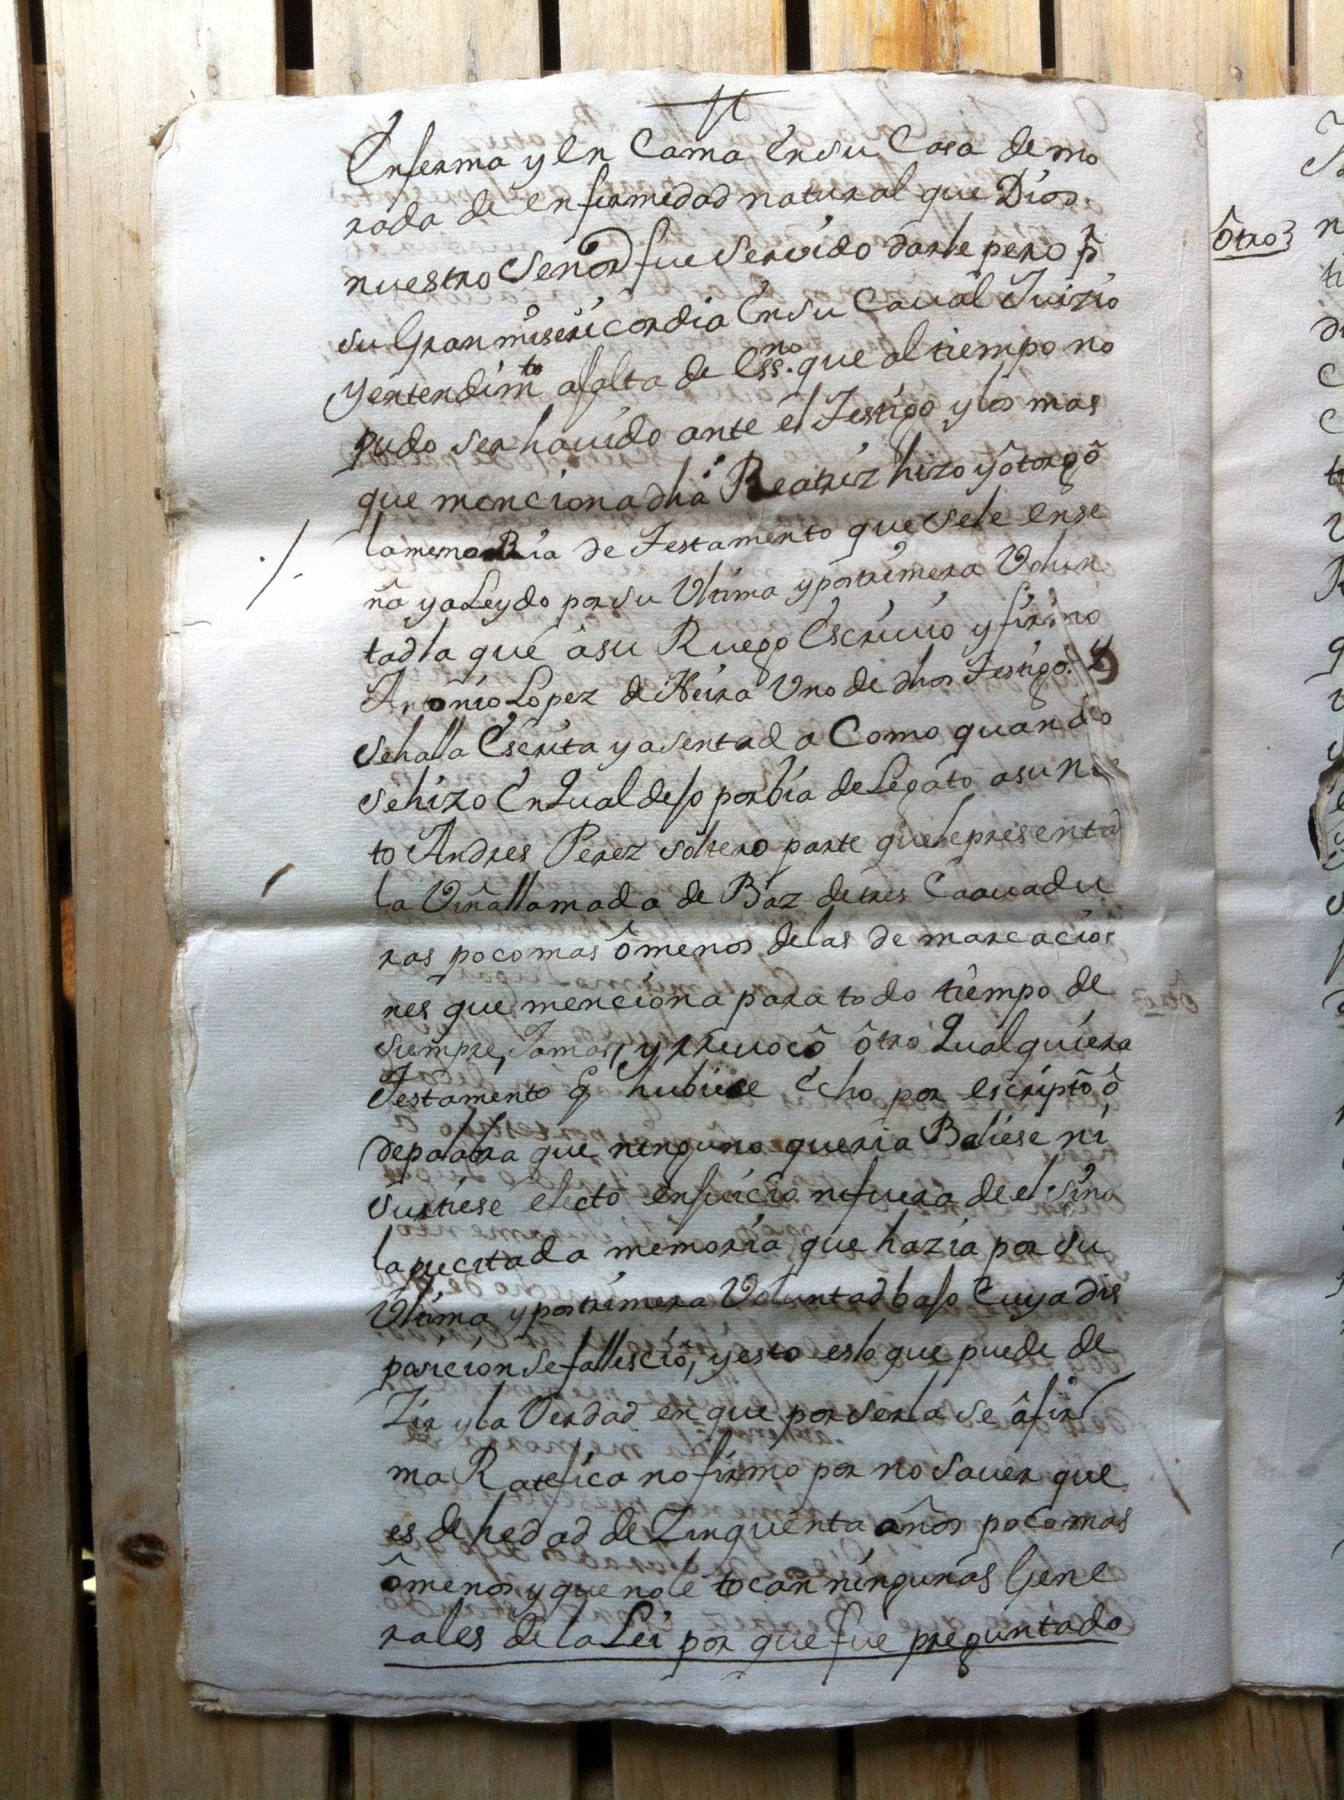 Enferma y en Cama En su Casa de mo
rada de enfermedad natural que Dios
nuestro Señor fue Servido darle pero p.r
su Gran misericordia En su Caval Juizio
y entendim.to a falta de Ess.no que al tiempo no
pudo ser havido ante el Testigo y los mas
que menciona dha Beatriz hizo y ôtorgô
la memoRia de Testamento que se le ense
ña ya Leydo por su Ultima y postrimera Volun
tad la que â su Ruego Escrivio y firmo
Antonio Lopez de Neira Uno de dhos Testigos y
se halla Escrita y asentada Como quando
se hizo En Qual dejo por bia de Legato a su nie
to Andres Perez soltero parte que le presenta
la Viña llamada de Baz de tres Caavadu
ras poco mas ô menos de las demarcacio
nes que menciona para todo tiempo de
siempre, Jamas, y rrevocô ôtro Qualquiera
Testamento q hubiese Echo por escripto ô
de palabra que ninguno queria Baliese ni
surtiese efecto en juicio ni fuera de el sino
la precitada memoria que hazia por su
Ultima y postrimera Voluntad bajo Cuya dis
posicion se fallesciô, y esto es lo que puede de
Zir y la Verdad en que por serla se âfir
ma Ratefica no firmo por no saver que
es de hedad de Zinquenta años poco mas
ô menos y que no le tocan ningunas Gene
rales de la Lei por que fue preguntado
ôtro